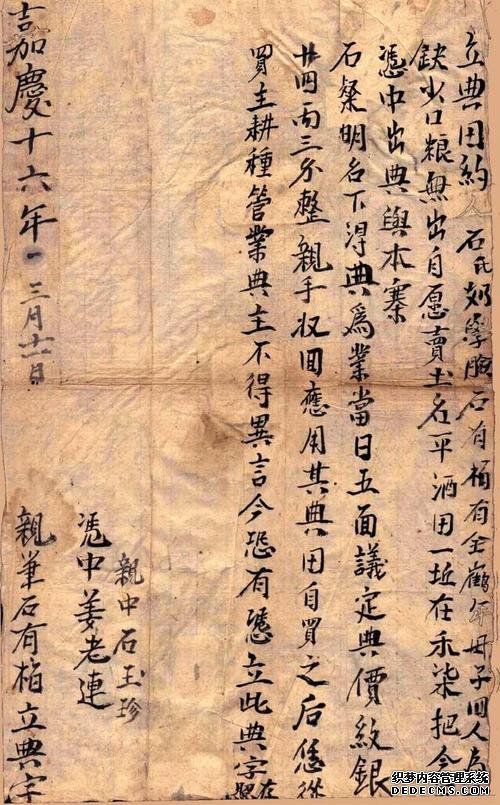 立典田約人石氏 學 石有桶有全 年母子四人為
缺少口粮無出自愿賣土名平酒田一坵在禾柒把今
憑中出典與本寨
石燦明名下淂典為業當日五面議定典價紋銀
廿四兩三分整親手收回應用其典田自買之后恁從
買主耕種管業典主不得異言今恐有憑立此典字在照
親中石玉珍
憑中姜老連
親筆石有 立典字
嘉慶十六年 三月 日
织梦内容管理系统
DEDECMS.COM